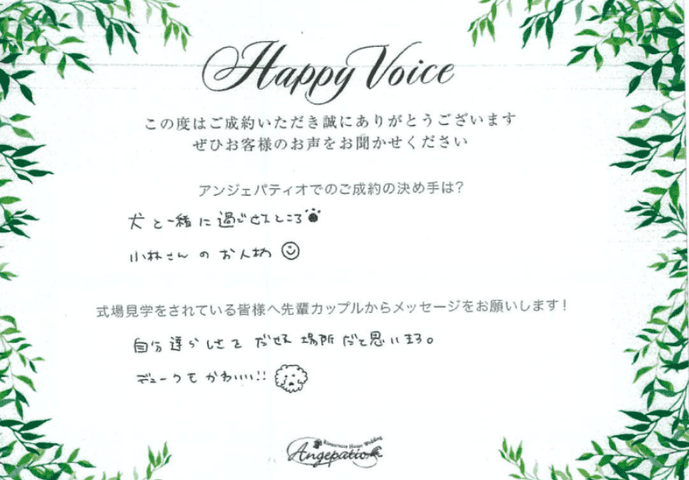 Happy Voice
この度はご成約いただき誠にありがとうございます
ぜひお客様のお声をお聞かせください
アンジェパティオでのご成約の決め手は?
犬と一緒に過ごせるところ
小林さんのお人柄
式場見学をされている皆様へ先輩カップルからメッセージをお願いします!
自分達らしさをだせる場所だと思います。
デュークもかわいい!!
Angepatio